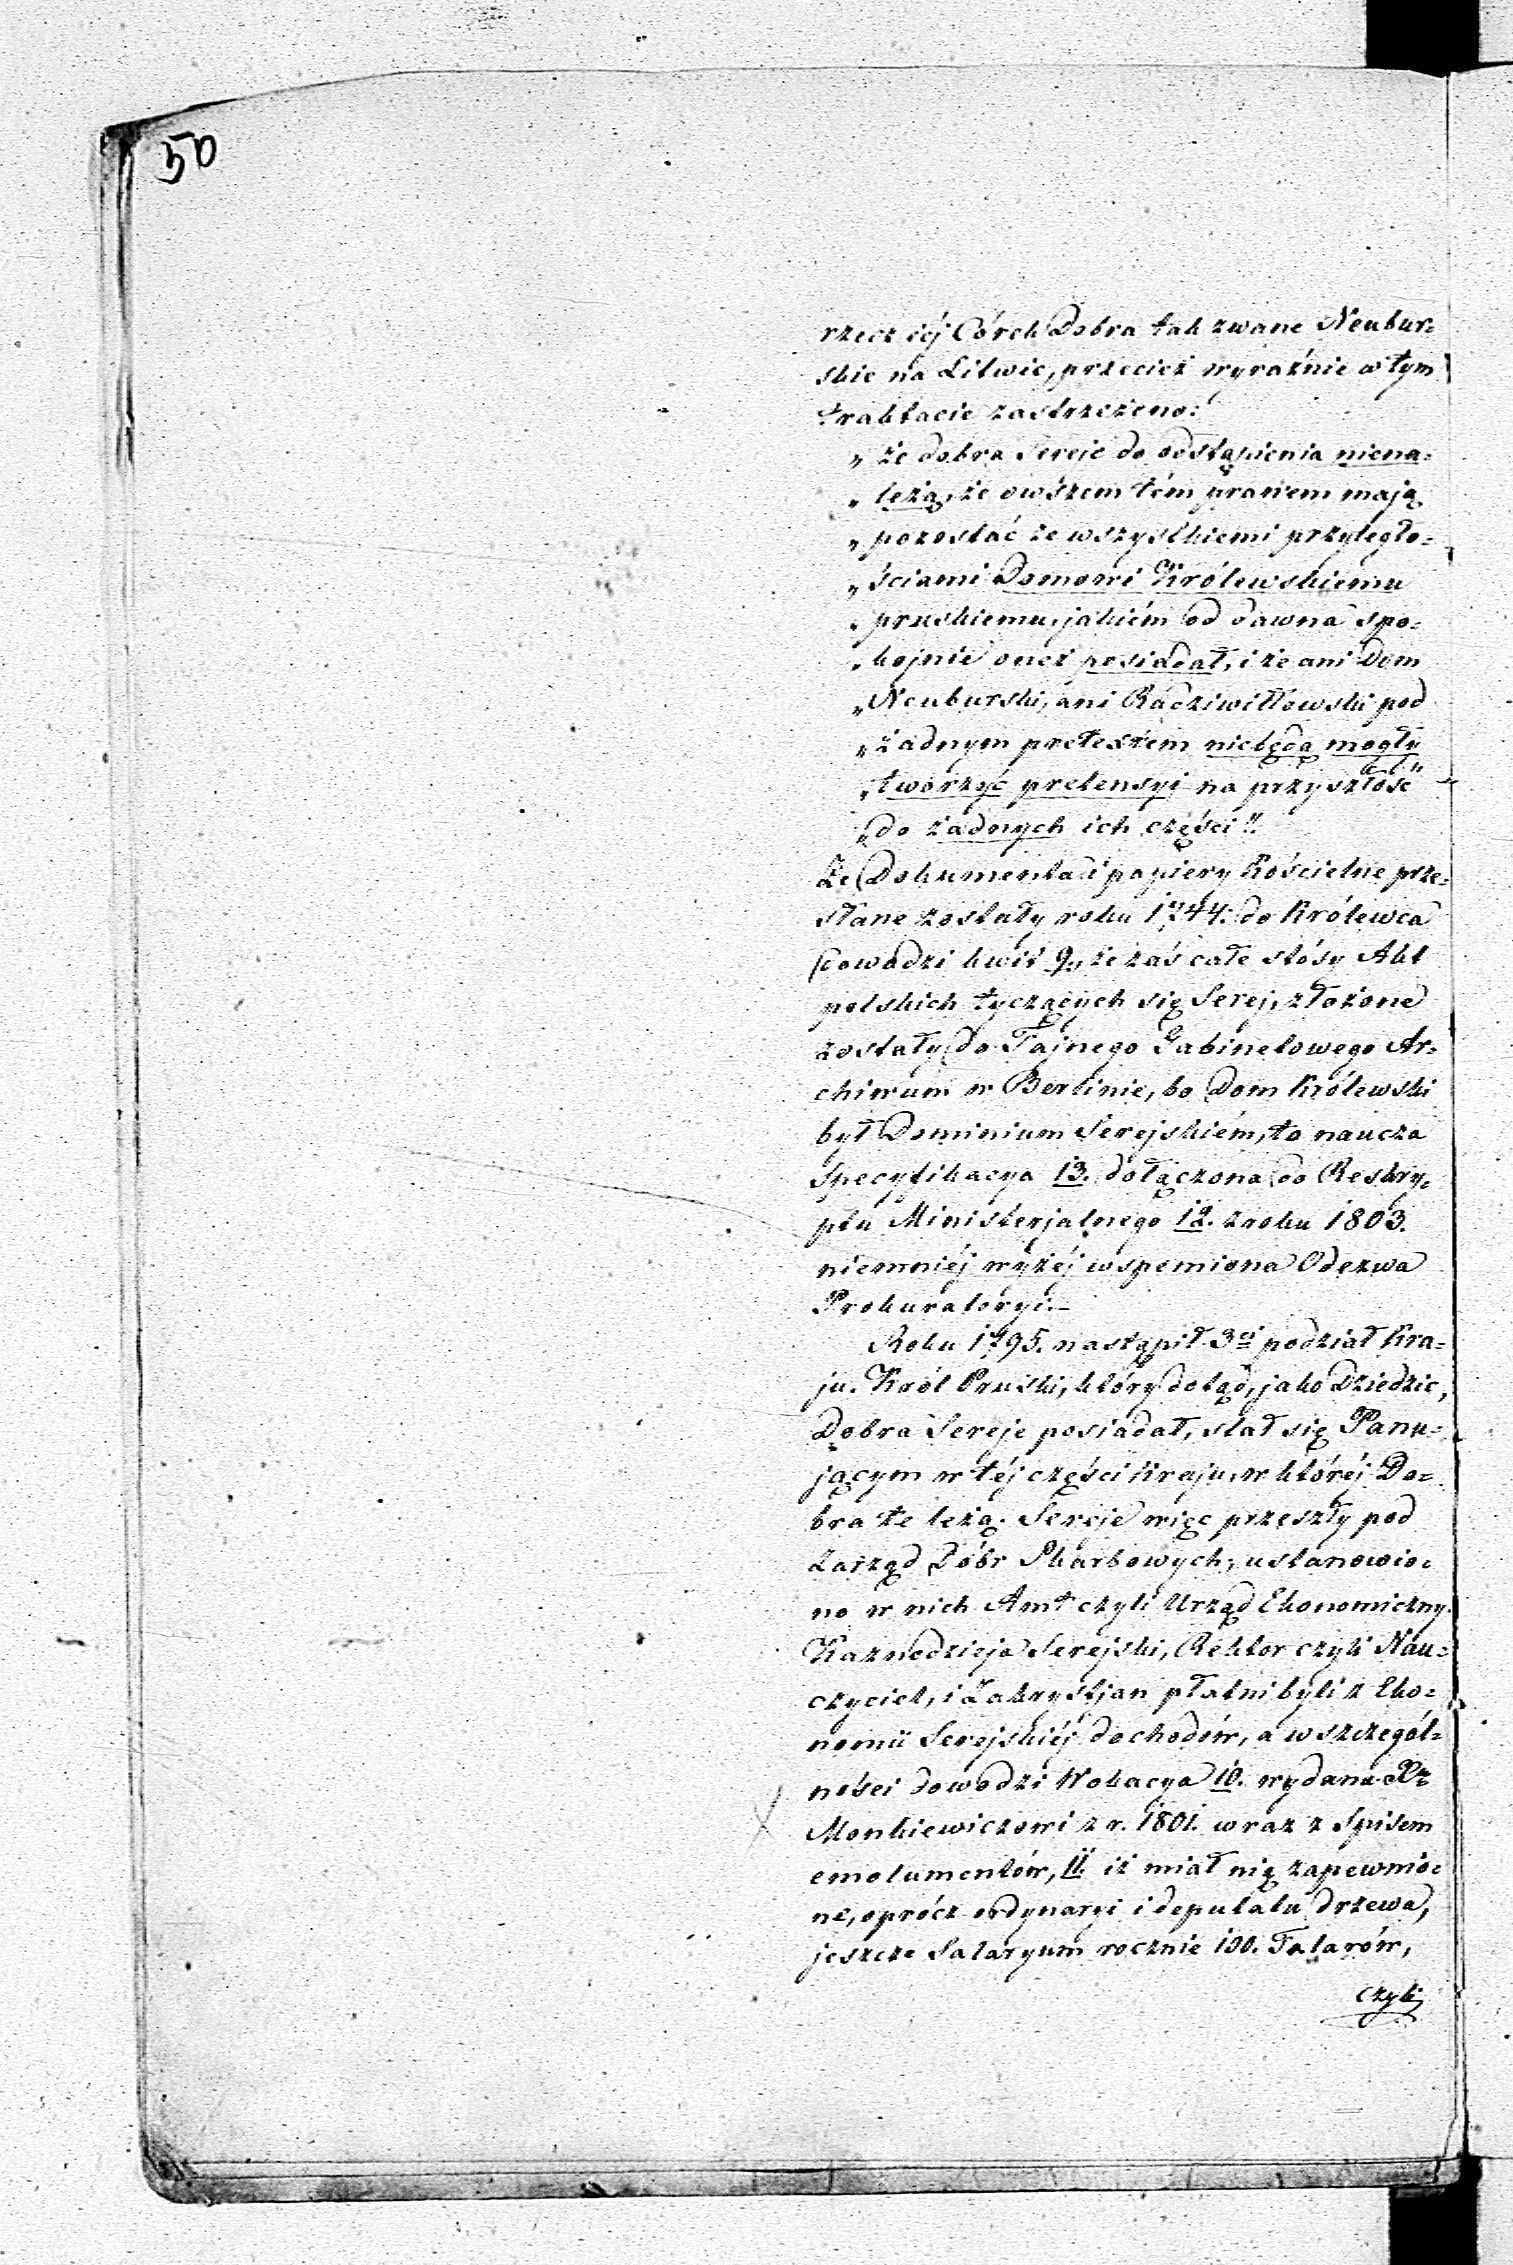 50
rzecz iéj Córek Dobra tak zwane Neubur=
skie na Litwie, przecież wyraźnie w tym
traktacie zastrzeżono:
„ że dobra Sereje do odstąpienia niena=
„ leżą, że owszem tém prawem mają
„ pozostać ze wszystkiemi przyległo=
„ ściami Domowi Królewskiemu
„ pruskiemu, jakiém od dawna spo=
„ kojnie onež posiadał, i że ani Dom
„ Neuburski, ani Radziwiłłowski pod
„ żadnym pretextem niebędą mogły
„ tworzyć pretensyi na przyszłość"
„ do żadnych ich części".
Że Dokumenta i papiery Kościelne prze=
słane zostały roku 1744. do Królewca
dowodzi kwit 9., że zaś całe stósy Akt
polskich tyczących się Serej, złożone
zostały do Tajnego Gabinetowego Ar=
chiwum w Berlinie, bo Dom Królewski
był Dominium Serejskiém, to naucza
Specyfikacya 13. dołączona do Reskry=
ptu Ministerjalnego 12. z roku 1803.
niemniéj wyżéj wspomiona Odezwa
Prokuratoryi.–
Roku 1795. nastąpił 3ci podział Kra=
ju. Król Pruski, który dotąd, jako Dziedzic,
Dobra Sereje posiadał, stał się Panu=
jącym w téj części Kraju, w któréj Do=
bra te leżą. Sereje więc przeszły pod
Zarząd Dóbr Skarbowych, ustanowio=
no w nich Amt czyli Urząd Ekonomiczny.
Kaznodzieja Serejski, Rektor czyli Nau=
czyciel, i Zakrystjan płatni byli z Eko=
nomii Serejskiéj dochodów, a w szczegól=
ności dowodzi Wokacya 10. wydana Xz
Monkiewiczowi z r. 1801. wraz z Spisem
emolumentów, 11. iż miał nią zapewnio=
ne, oprócz ordynaryi i deputatu drzewa,
jeszcze Salaryum rocznie 100. Talarów,
czyli